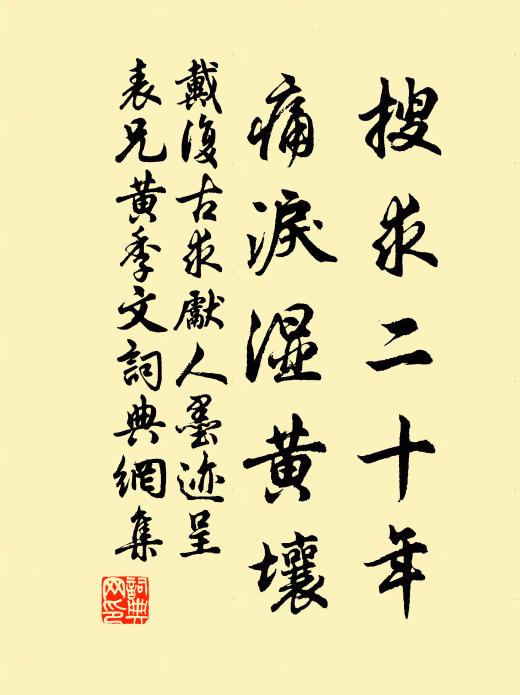 搜求二十年
痛淚湿黄壤
戴復古求獻人墨迹呈
表兄黄季文詞典網集
詞典網印